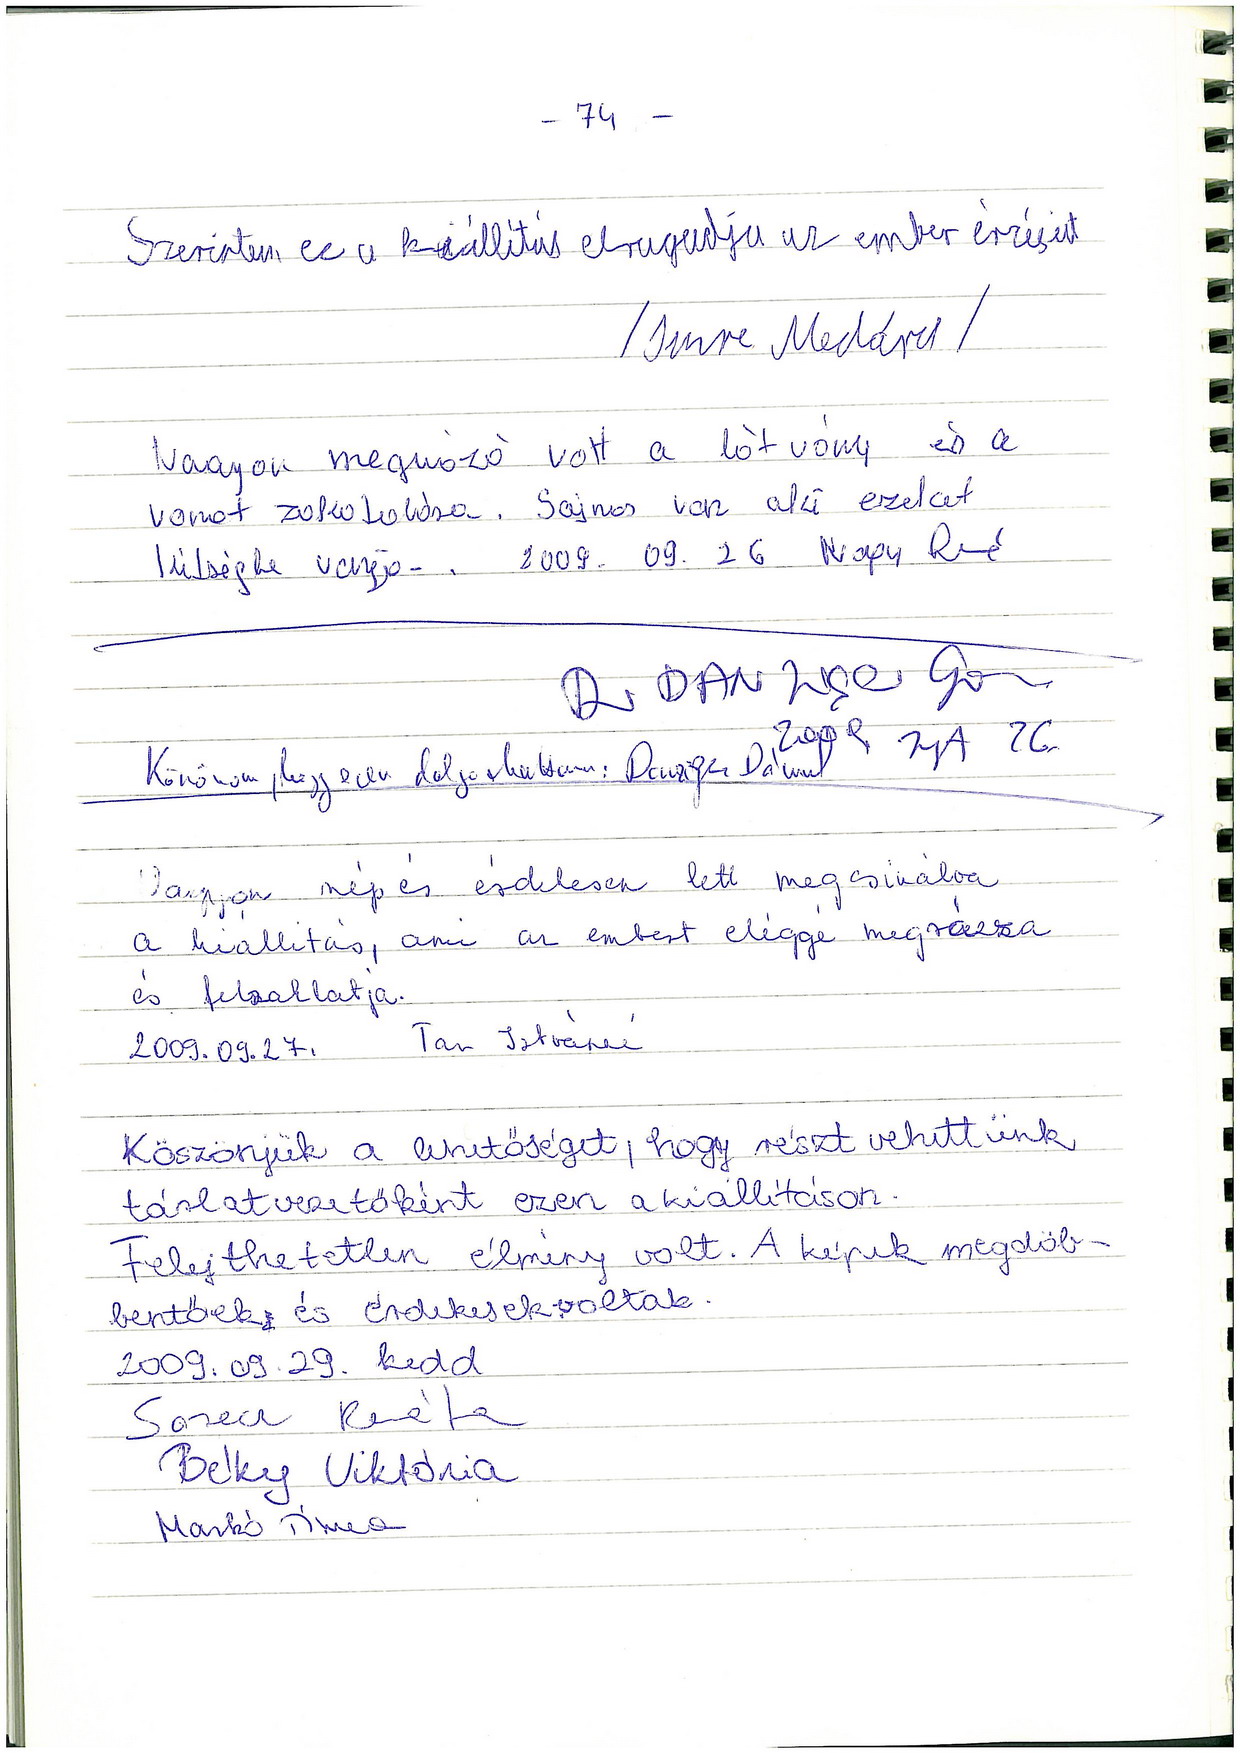 - 74 -
Szerintem ez a kiállítás elragadja az ember érzéseit
/Imre Medárd/
Nagyon megrázó volt a látvány és a
vonat zakatolása. Sajnos van aki ezeket
kétségbe vonja-. 2009. 09. 26 Nagy René
Dr DANZIGER
2009 26
Köszönöm, hogy ezen dolgozhattam: Danziger Dániel
Nagyon szép és érdekesen lett megcsinálva
a kiállitás, ami az embert eléggé megrázza
és felzaklatja.
2009.09.27. Tar Istvánné
Köszönjük a lehetőséget, hogy részt vehettünk
tárlatvezetőként ezen a kiállításon.
Felejthetetlen élmény volt. A képek megdöb-
bentőek és érdekesek voltak.
2009.09.29. kedd
Renáta
Béky Viktória
Markó Tímea